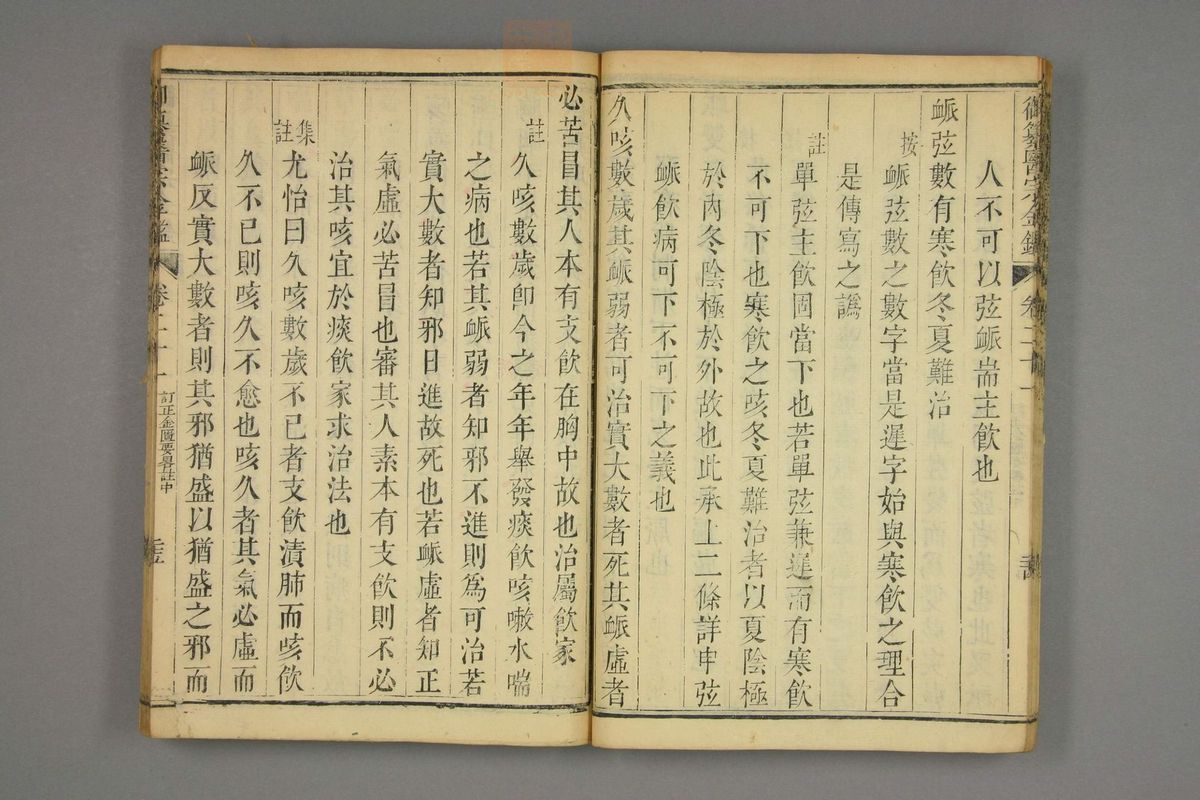 御纂醫宗金鑑 卷二十一
人不可以弦衇耑主飲也
衇弦數有寒飲冬夏難治
按 衇弦數之數字當是遲字始與寒飲之理合
是傳寫之譌
註 單弦主飲固當下也若單弦兼遲而有寒飲
不可下也寒飲之咳冬夏難治者以夏陰極
於內冬陰極於外故也此承上二條詳申弦
衇飲病可下不可下之義也
久咳數歲其衇弱者可治實大數者死其衇虛者
必苦冒其人本有支飲在胸中故也治屬飲家
註 久咳數歲卽今之年年舉發痰飲咳嗽水喘
之病也若其衇弱者知邪不進則爲可治若
實大數者知邪日進故死也若衇虛者知正
氣虛必苦冒也審其人素本有支飲則不必
治其咳宜於痰飲家求治法也
集註 尤怡曰久咳數歲不已者支飲漬肺而咳飲
久不已則咳久不愈也咳久者其氣必虛而
衇反實大數者則其邪猶盛以猶盛之邪而
卷二十一 訂正金匱要畧註中